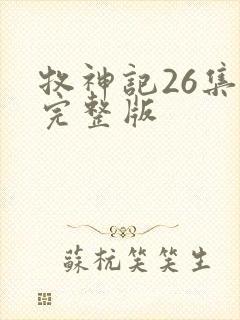 牧神記26集
完整版
蘇杭笑笑生